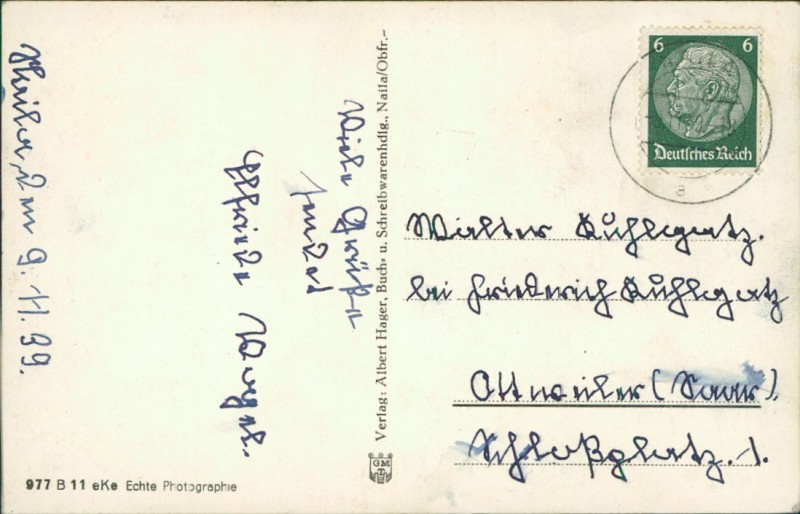 Naila, den 9.11.39.
Viele Grüße
sendet
Elfriede Voges.
Verlag: Albert Hager, Buch- u. Schreibwarenhdlg., Naila/Obfr.-
GM
977 B 11 eKe Echte Photographie
6 6
Deutsches Reich
a
Walter Kuhlgatz.
bei Friederich Kuhlgatz
Ottweiler (Saar).
Schloßplatz. 1.